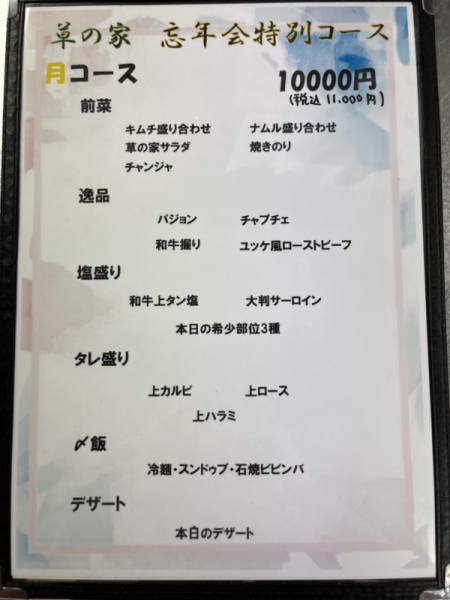 草の家 忘年会特別コース
月コース 10000円
(税込 11,000円)
前菜
キムチ盛り合わせ ナムル盛り合わせ
草の家サラダ 焼きのり
チャンジャ
逸品
パジョン チャプチェ
和牛握り ユッケ風ローストビーフ
塩盛り
和牛上タン塩 大判サーロイン
本日の希少部位3種
タレ盛り
上カルビ 上ロース
上ハラミ
〆飯
冷麺・スンドゥブ・石焼ビビンバ
デザート
本日のデザート